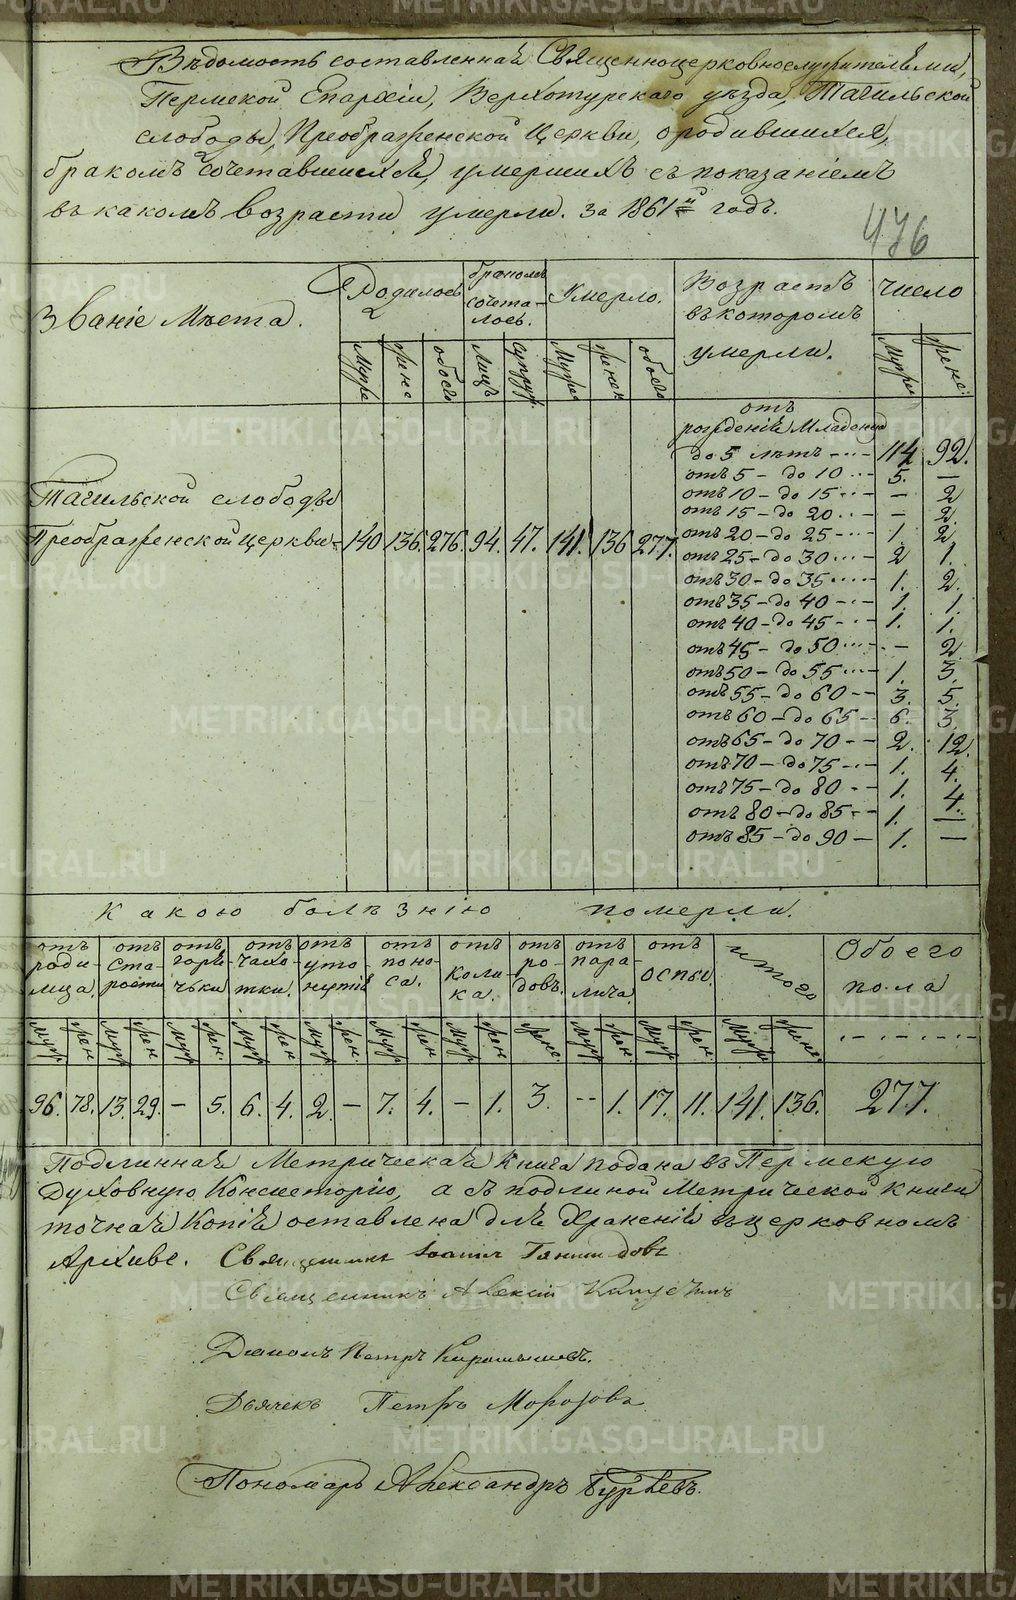 Вѣдомость составленная Священноцерковнослужителями,
Пермской Епархіи, Верхотурскаго уѣзда, Тагильской
слободы, Преображенской Церкви, о родившихся,
бракомъ сочетавшихся, умершихъ съ показаніемъ
въ какомъ возрасти умерли. За 1861й годъ.
476
Званіе Мѣста.
Родилось
бракомъ
сочета-
лось.
Умерло.
Возрастъ
въ которомъ
умерли.
число
Муже
жене
обоего
Лицъ
супруж.
Муже
женек
обоего
Мужек
жене.
отъ
рожденія Младенца
до 5 лѣтъ - 114 92.
отъ 5 - до 10 - 5. -
отъ 10 - до 15 - - 2
отъ 15 - до 20 - - 2.
Тагильской слободы
Преображенской церкви 140 136. 276. 94. 47. 141. 136 277.
отъ 20 - до 25 - 1. 2
отъ 25 - до 30 - 2 1.
отъ 30 - до 35 - 1. 2.
отъ 35 - до 40 - 1. 1.
отъ 40 - до 45 - 1. 1.
отъ 45 - до 50 - - 2
отъ 50 - до 55 - 1. 3.
отъ 55 - до 60 - 3. 5.
отъ 60 - до 65 - 6. 3.
отъ 65 - до 70 - 2. 12.
отъ 70 - до 75 - 1. 4.
отъ 75 - до 80 - 1. 4.
отъ 80 - до 85 - 1. -
отъ 85 - до 90 - 1. -
Какою болѣзнію померли.
отъ
роди-
мца.
отъ
ста-
рости
отъ
горя-
чьки
отъ
чахо-
тки.
отъ
уто-
нутія
отъ
поно-
са.
отъ
коли-
ка.
отъ
ро-
довъ.
отъ
пара-
лича.
отъ
оспы.
итого
Обоего
пола
Муж. жен. Муж. жен. Муж. жен. Муж. жен. Муж. жен. Муж. жен. Муж. жен. жене. Муж. жен. Муж. жен. Муж. жене.
96. 78. 13. 29. - 5. 6. 4. 2. - 7. 4. - 1. 3. - 1. 17. 11. 141. 136. 277.
Подлинная Метрическая Книга подана въ Пермскую
Духовную Консисторію, а съ подлиной Метрической книги
точная Копія оставлена для храненія въ церковномъ
Архиве. Священникъ Іоаннъ
Священникъ Алексій
Діаконъ Петръ
Дьячекъ Петръ Морозовъ
Пономарь Александръ Гурьевъ.
METRIKI.GASO-URAL.RU